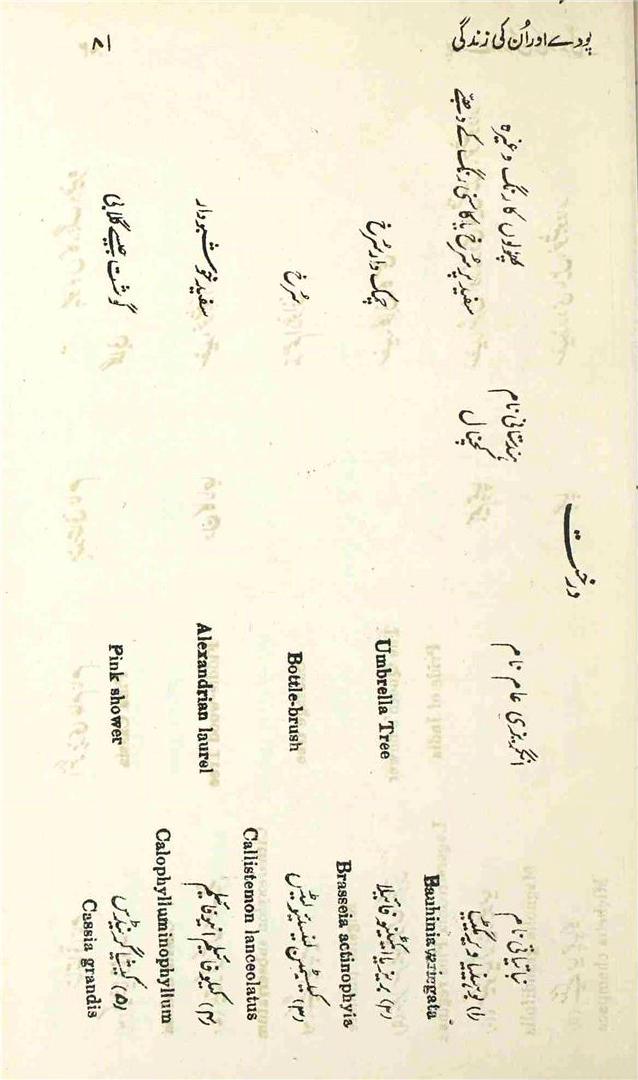 پودے اور اُن کی زندگی
۸۱
درخت
نباتیاتی نام
انگریزی عام نام
ہندستانی نام
پھولوں کا رنگ وغیرہ
(۱) بوہینیا ویریگیٹا
Bauhinia varirgata
کچنال
سفید پر سُرخ یا کاسنی رنگ کے دھبّے
(۲) بریزیا ایکٹینوفائیلا
Brasseia actinophyia
Umbrella Tree
چمک دار سُرخ
(۳)
Callistemon lanceolatus
Bottle-brush
سُرخ
(۴) کیلوفائیلم انیوفائیلم
Calophylluminophyllum
Alexandrian laurel
سفید خوشبودار
(۵) کیشیا گرینڈس
Cassia grandis
Pink shower
گوشت جیسے گلابی